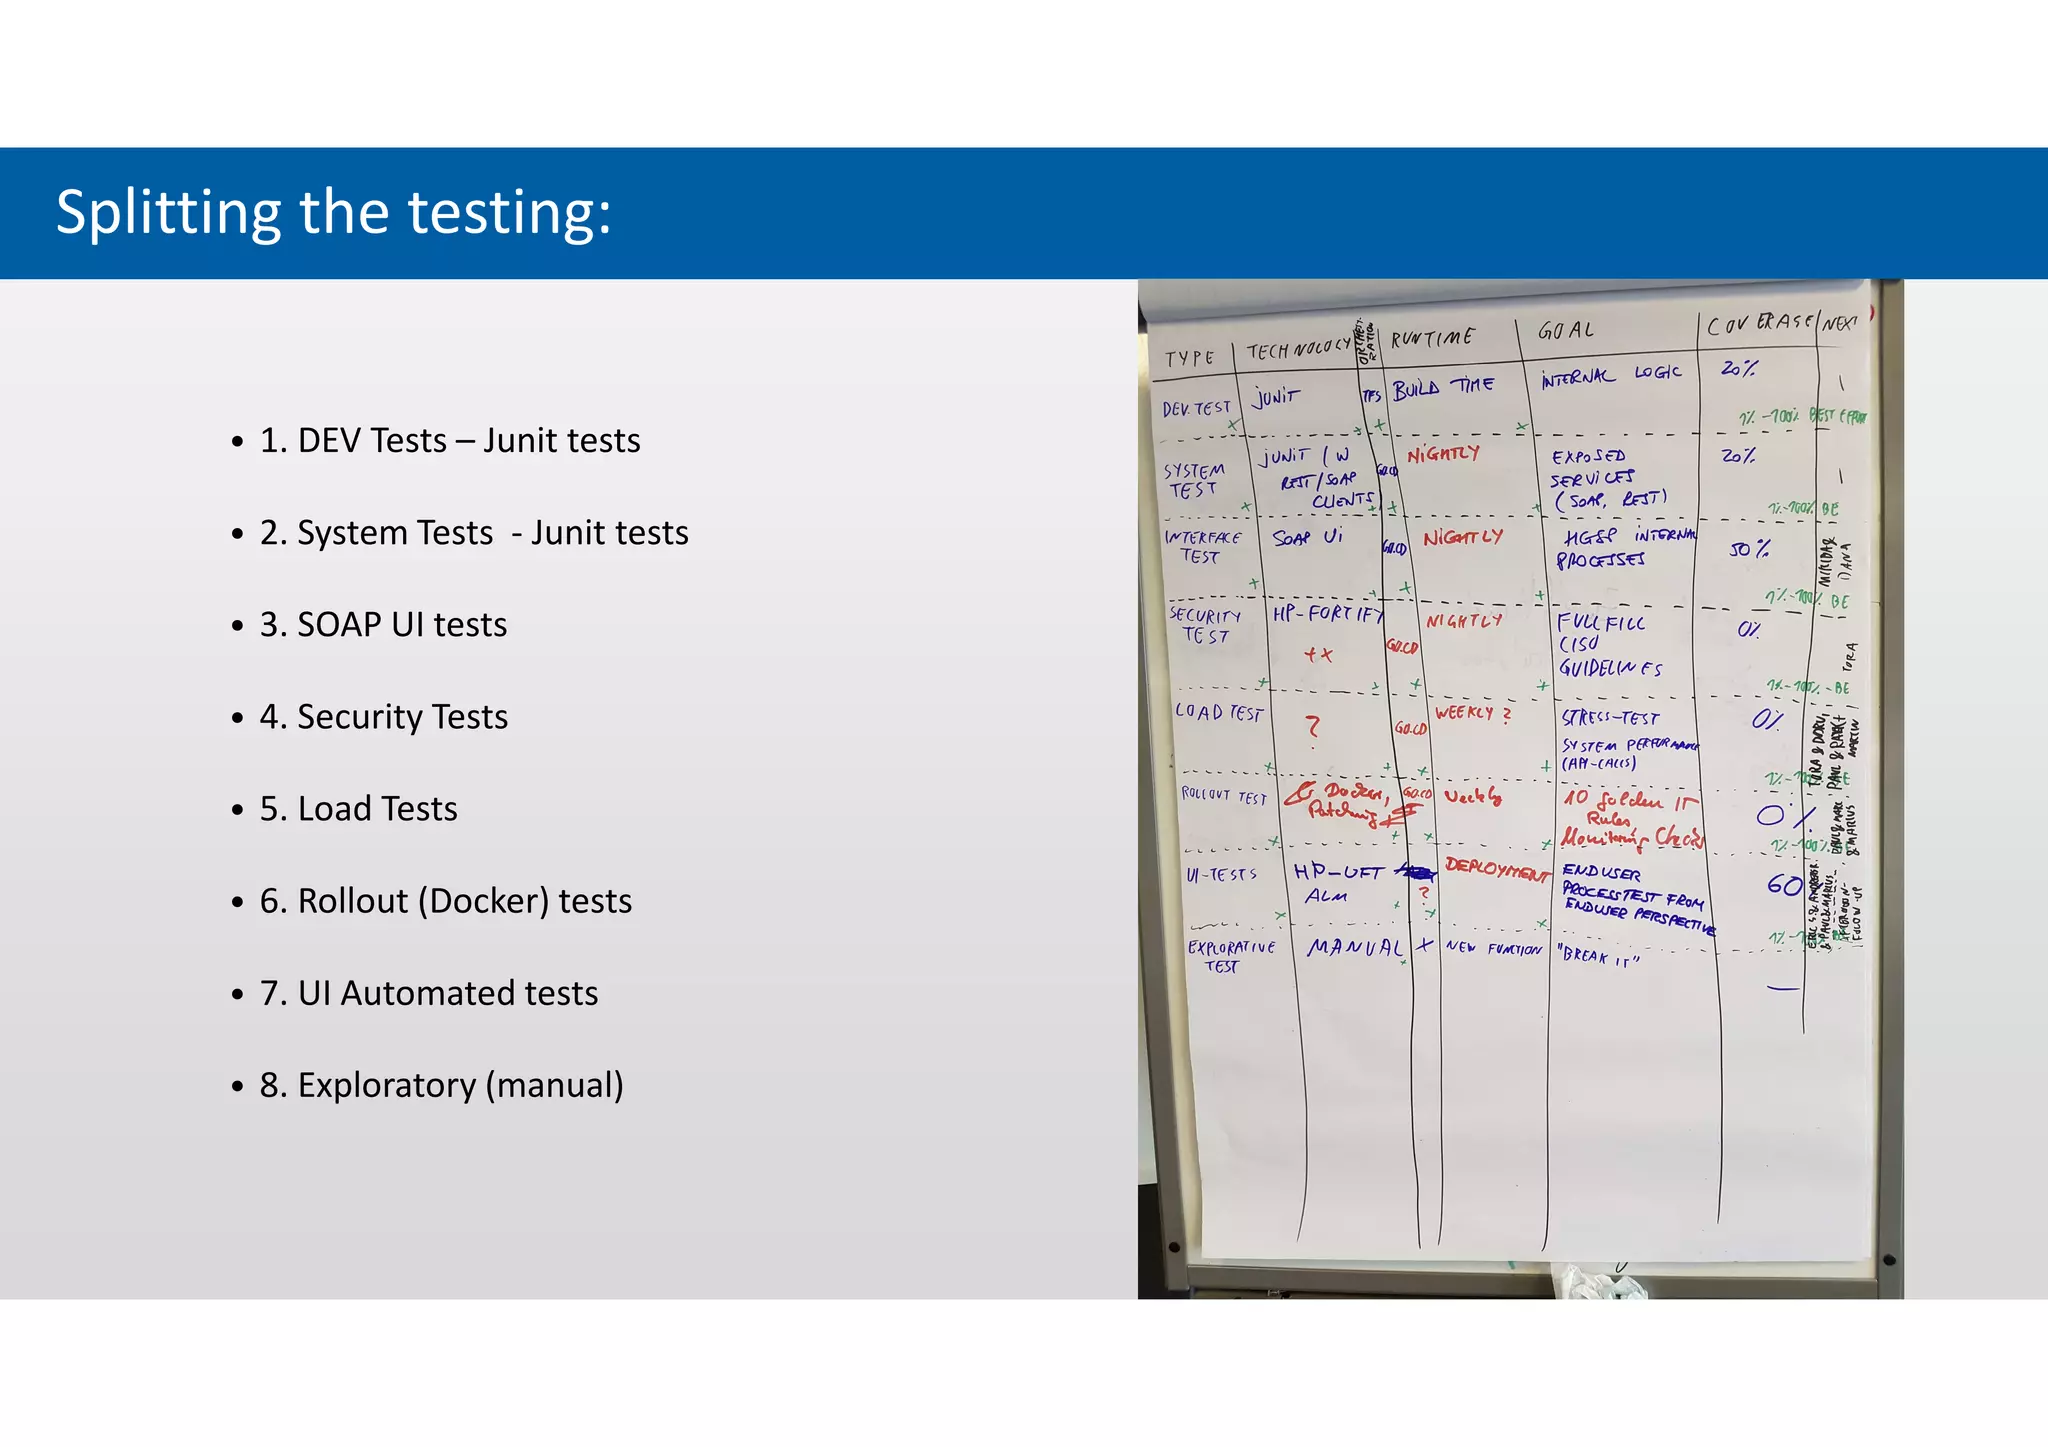 Splitting the testing:
• 1. DEV Tests – Junit tests
• 2. System Tests - Junit tests
• 3. SOAP UI tests
• 4. Security Tests
• 5. Load Tests
• 6. Rollout (Docker) tests
• 7. UI Automated tests
• 8. Exploratory (manual)
TYPE TECHNOLOGY RUNTIME GOAL COVERAGE NEXT
DEV. TEST JUNIT TFS BUILD TIME INTERNAL LOGIC 20%
1%-100% BEST EFFORT
SYSTEM JUNIT / W GO.CD NIGHTLY EXPOSED 20%
TEST REST/SOAP SERVICES
CLIENTS (SOAP, REST)
1%-100% BE
INTERFACE SOAP UI GO.CD NIGHTLY HGSP INTERNAL 50%
TEST PROCESSES
DANA
1%-100% BE
SECURITY HP-FORTIFY GO.CD NIGHTLY FULLFILL 0%
TEST ++ CISO
GUIDELINES
TORA
1%-100% - BE
LOAD TEST ? GO.CD WEEKLY? STRESS-TEST 0%
SYSTEM PERFORMANCE
(API-CALLS)
ROLLOUT TEST Docker, GO.CD Weekly 10 golden IT 0%
Patching Rules
Monitoring Checks
UI-TESTS HP-UFT ? DEPLOYMENT ENDUSER 60
ALM PROCESSTEST FROM
ENDUSER PERSPECTIVE
FOLLOW-UP
EXPLORATIVE MANUAL X NEW FUNCTION "BREAK IT" —
TEST